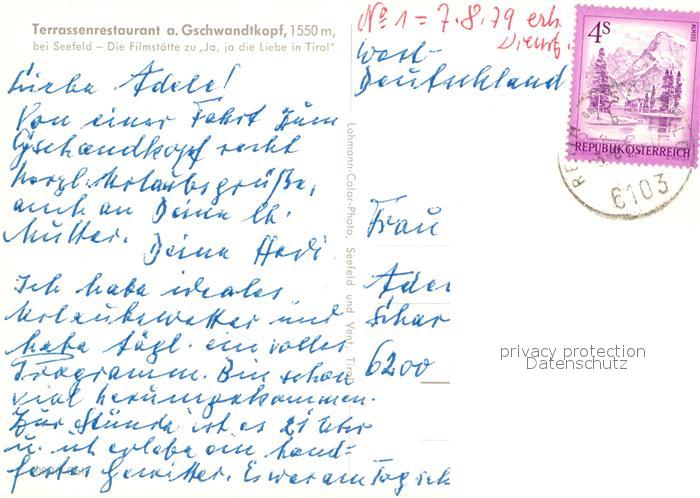 Terrassenrestaurant a. Gschwandtkopf, 1550 m,
bei Seefeld – Die Filmstätte zu „Ja, ja die Liebe in Tirol"
Liebe Adele!
Von einer Fahrt zum
Gschandkopf recht
herzl. Urlaubsgrüße,
auch an Deine lb.
Mutter. Deine Hedi.
Ich habe ideales
Urlaubswetter und
habe tägl. ein volles
Programm. Bin schon
viel herumgekommen.
Zur Stunde ist es 21 Uhr
u. ich erlebe ein hand-
festes Gewitter. Es war am Tag sch
Lohmann-Color-Photo, Seefeld und Vent, Tirol
No 1 = 7.8.79 erh.
Dienst.
West-
Deutschland
4S
ALMSEE
REPUBLIK ÖSTERREICH
6103
Frau
Ade
Schar
6200
privacy protection
Datenschutz